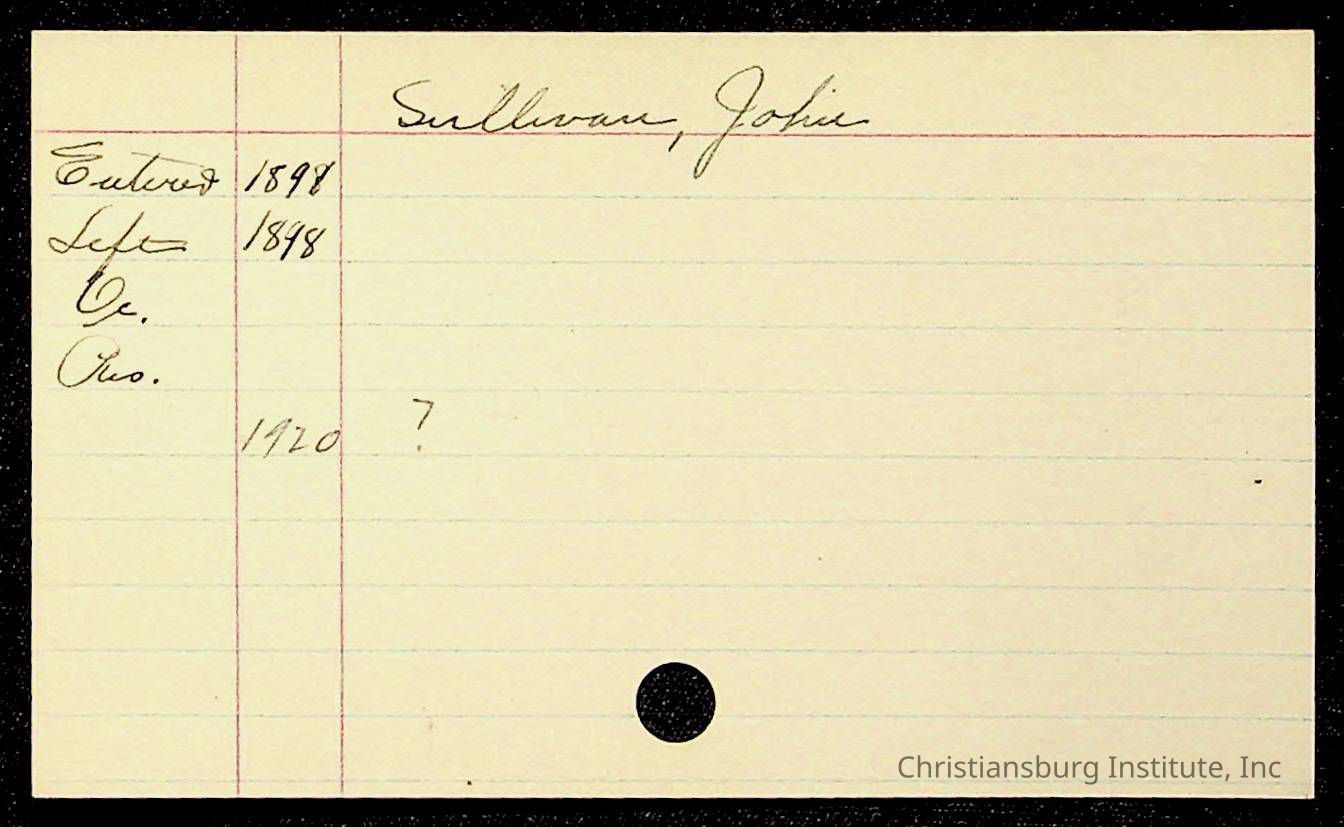 Sullivan, John
Entered 1898
Left 1898
Oc.
Res.
1920 ?
Christiansburg Institute, Inc